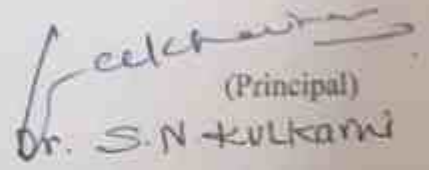 (Principal)
Dr. S.N KULKarni